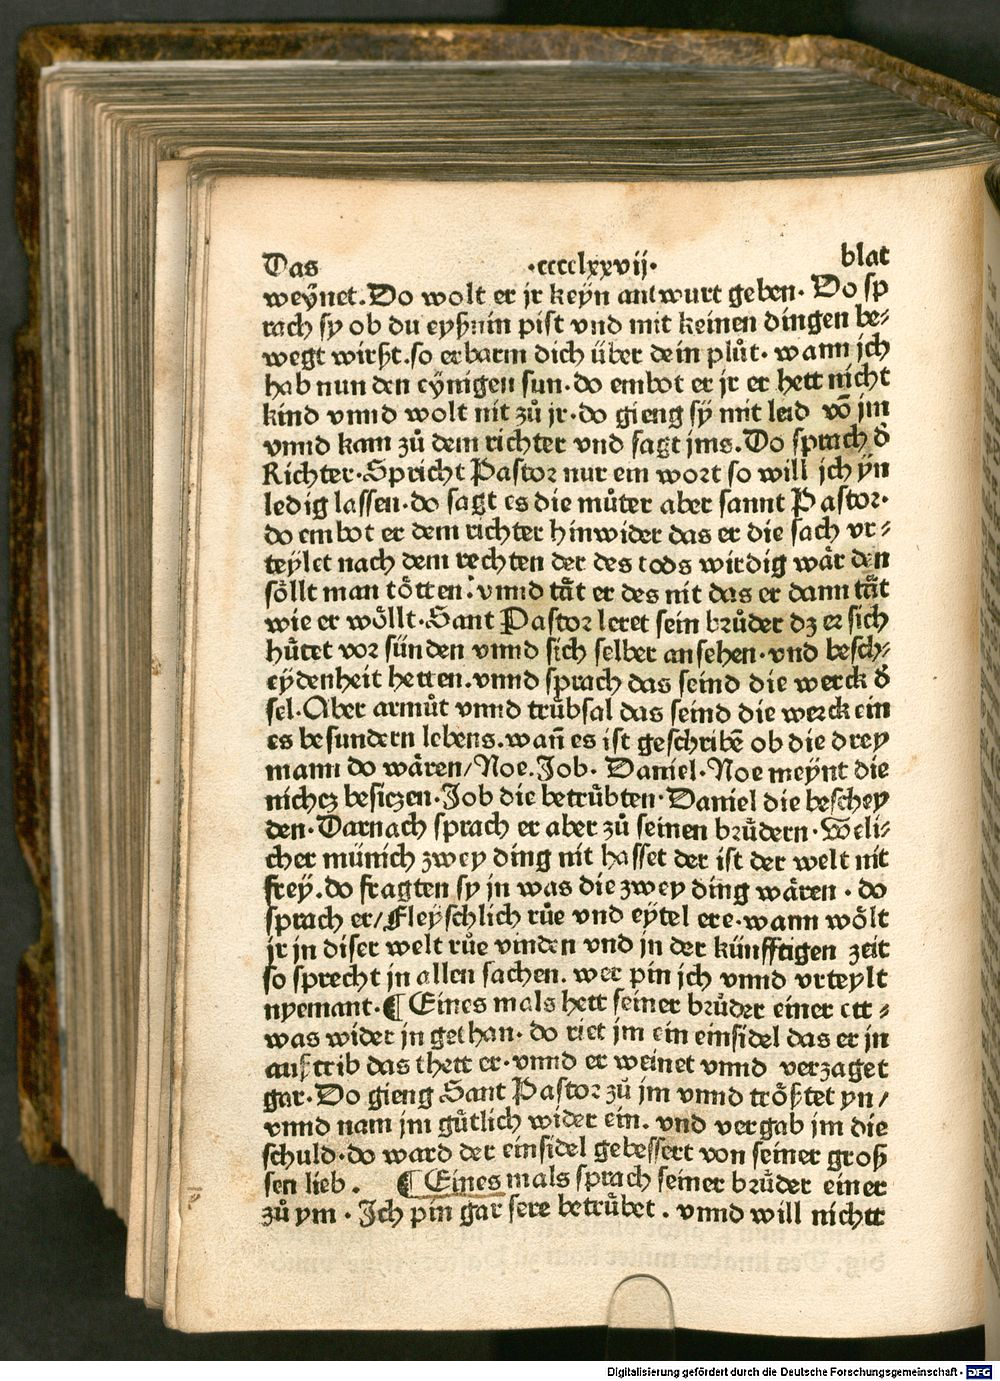 Das ·cccclxxvij· blat
weÿnet. Do wolt er jr keÿn antwurt geben· Do sp
rach sy ob du eyßnin pist vnd mit keinen dingen be⸗
wegt wirßt. so erbarm dich über dein plůt· wann jch
hab nun den eÿnigen sun· do embot er jr er hett nicht
kind vnnd wolt nit zů jr· do gieng sÿ mit leid võ jm
vnnd kam zů dem richter vnd sagt jms. Do sprach d̕
Richter· Spricht Pastor nur ein wort so will jch ÿn
ledig lassen· do sagt es die můter aber sannt Pastor·
do embot er dem richter hinwider das er die sach vr⸗
teÿlet nach dem rechten der des tods wirdig wår den
söllt man tötten: vnnd tåt er des nit das er dann tåt
wie er wöllt· Sant Pastor leret sein brůder dz er sich
hůtet vor sünden vnnd sich selber ansehen· vnd besch⸗
eydenheit hetten. vnnd sprach das seind die werck d̕
sel· Aber armůt vnnd trůbsal das seind die werck ein
es besundern lebens. wañ es ist geschribē ob die drey
mann do wåren/ Noe. Job· Daniel· Noe meÿnt die
nichcz besiczen· Job die betrůbten· Daniel die beschey
den· Darnach sprach er aber zů seinen brůdern· Weli⸗
cher münich zwey ding nit hasset der ist der welt nit
freÿ. do fragten sy jn was die zwey ding wåren · do
sprach er/ Fleÿschlich růe vnd eÿtel ere· wann wölt
jr jn diser welt růe vinden vnd jn der künfftigen zeit
so sprecht jn allen sachen. wer pin jch vnnd vrteylt
nyemant· ¶ Eines mals hett seiner brůder einer ett⸗
was wider jn gethan· do riet jm ein einsidel das er jn
außtrib das thett er· vnnd er weinet vnnd verzaget
gar· Do gieng Sant Pastor zů jm vnnd trößtet yn/
vnnd nam jm gůtlich wider ein. vnd vergab jm die
schuld· do ward der einsidel gebessert von seiner groß
sen lieb. ¶ Eines mals sprach seiner brůder einer
zů ym · Ich pin gar sere betrůbet. vnnd will nichtt
Digitalisierung gefördert durch die Deutsche Forschungsgemeinschaft - DFG